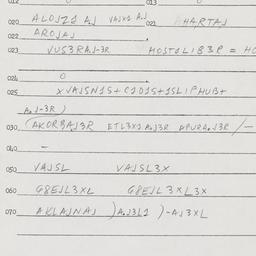 012 013
020 ALOJZI AJ VAJXI AJ 021 HARTAJ
022 AROJAJ
023 VUS3RAJ-3R HOSTILIB3P = HO
024 0
025 XVAJSNIS+CIDIS+ISLIPHUB+
AJ-3R)
030 (AKORBAJ3R ETL3XIAJ3R APURAJ3R/—
040 —
050 VAJSL VAJSL3X
060 G8EJL3XL G8EJL3XL3X
070 AKLAJNAJ )AJ3LI )-AJ3XL